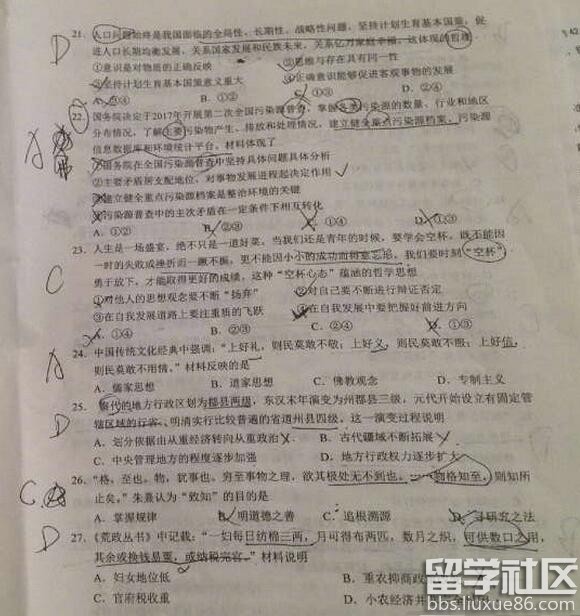 21. 人口问题始终是我国面临的全局性、长期性、战略性问题。坚持计划生育基本国策，促
进人口长期均衡发展，关系国家发展和民族未来，关系亿万家庭幸福。这体现的哲理
①意识是对物质的正确反映 ②思维与存在具有同一性
③坚持计划生育基本国策意义重大 ④正确意识能够促进客观事物的发展
A. ①③ B. ①② C. ③④ D. ②④
22. 国务院决定于2017年开展第二次全国污染源普查，掌握各类污染源的数量、行业和地区
分布情况，了解主要污染物产生、排放和处理情况，建立健全重点污染源档案、污染源
信息数据库和环境统计平台。材料体现了
①国务院在全国污染源普查中坚持具体问题具体分析
②主要矛盾居支配地位，对事物发展进程起决定作用
③建立健全重点污染源档案是整治环境的关键
④污染源普查中的主次矛盾在一定条件下相互转化
A. ①② B. ②③ C. ①④ D. ①③
23. 人生是一场盛宴，绝不只是一道好菜。当我们还是青年的时候，要学会空杯，既不能因
一时的失败或挫折而一蹶不振，更不能因小小的成功而得意忘形，我们要时刻“空杯”，
勇于放下，才能取得更好的成绩。这种“空杯心态”蕴涵的哲学思想
①对他人的思想观念要不断“扬弃” ②对自己要不断进行辩证否定
③在自我发展道路上要注重质的飞跃 ④在自我发展中要把握好前进方向
A. ①④ B. ②③ C. ②④ D. ①③
24. 中国传统文化经典中强调：“上好礼，则民莫敢不敬；上好义，则民莫敢不服；上好信，
则民莫敢不用情。”材料反映的是
A. 儒家思想 B. 道家思想 C. 佛教观念 D. 专制主义
25. 秦代的地方行政区划为郡县两级，东汉末年演变为州郡县三级，元代开始设立有固定管
辖区域的行省、明清实行比较普遍的省道州县四级，这一演变过程说明
A. 划分依据由从重经济转向从重政治 B. 古代疆域不断拓展
C. 中央管理地方的程度逐步加强 D. 地方行政权力逐步扩大
26. “格，至也，物，犹事也。穷至事物之理，欲其极处无不到也。……物格知至，则知所
止矣。”朱熹认为“致知”的目的是
A. 掌握规律 B. 明道德之善 C. 追根溯源 D. 寻研究之法
27. 《荒政丛书》中记载：“一妇每日纺棉三两，月可得布两匹，数月之织，可供数口之用，
其余或换钱易粟，或纳税完官。”材料说明
A. 妇女地位低 B. 重农抑商政
C. 官府税收重 D. 小农经济
D
A
C
A
D
C
D
留学社区
bbs.liuxue86.com